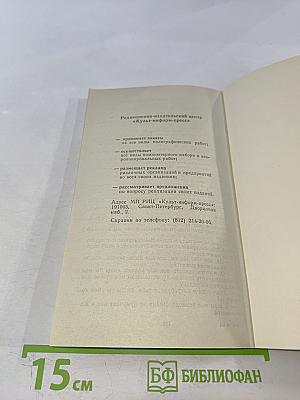 Редакционно-издательский центр
«Культ-информ-пресс»
— принимает заказы
на все виды полиграфических работ;
— осуществляет
все виды компьютерного набора и
— размещает рекламу
различных организаций и предприятий
во всех своих изданиях;
— рассматривает предложения
по вопросу реализации своих изданий.
Адрес МП РИЦ «Культ-информ-пресс»:
Санкт-Петербург,
Справки по телефону: (812)
15 см
БФ БИБЛИОФАН